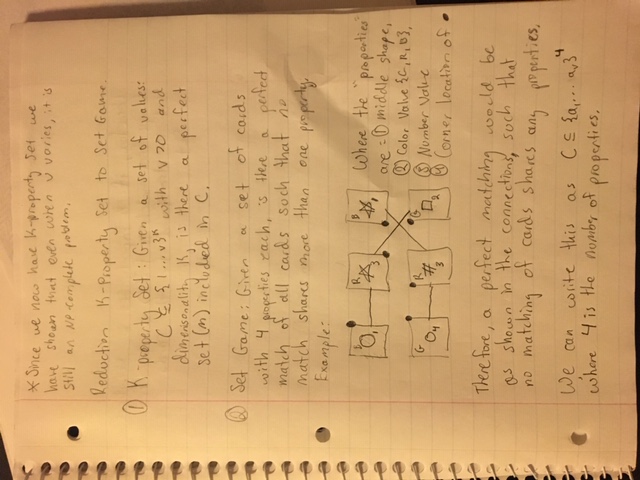 * Since we now have K-property Set we
have shown that even when v varies, it is
still an NP-complete problem.
Reduction K-Property Set to Set Game.
① K-property Set: Given a set of values:
C ⊆ {1...v}ᴷ with v>0 and
dimensionality K, is there a perfect
set (m) included in C.
② Set Game: Given a set of cards
with 4 properties each, is there a perfect
match of all cards such that no
match shares more than one property.
Example:
1
R 3
B 1
G 4
R # 3
G □ 2
Where the "properties"
are = ① middle shape,
② Color Value {G, R, B},
③ Number Value
④ Corner location of •
Therefore, a perfect matching would be
as shown in the connections, such that
no matching of cards shares any properties.
We can write this as C ⊆ {a₁...aᵥ}⁴
where 4 is the number of properties.